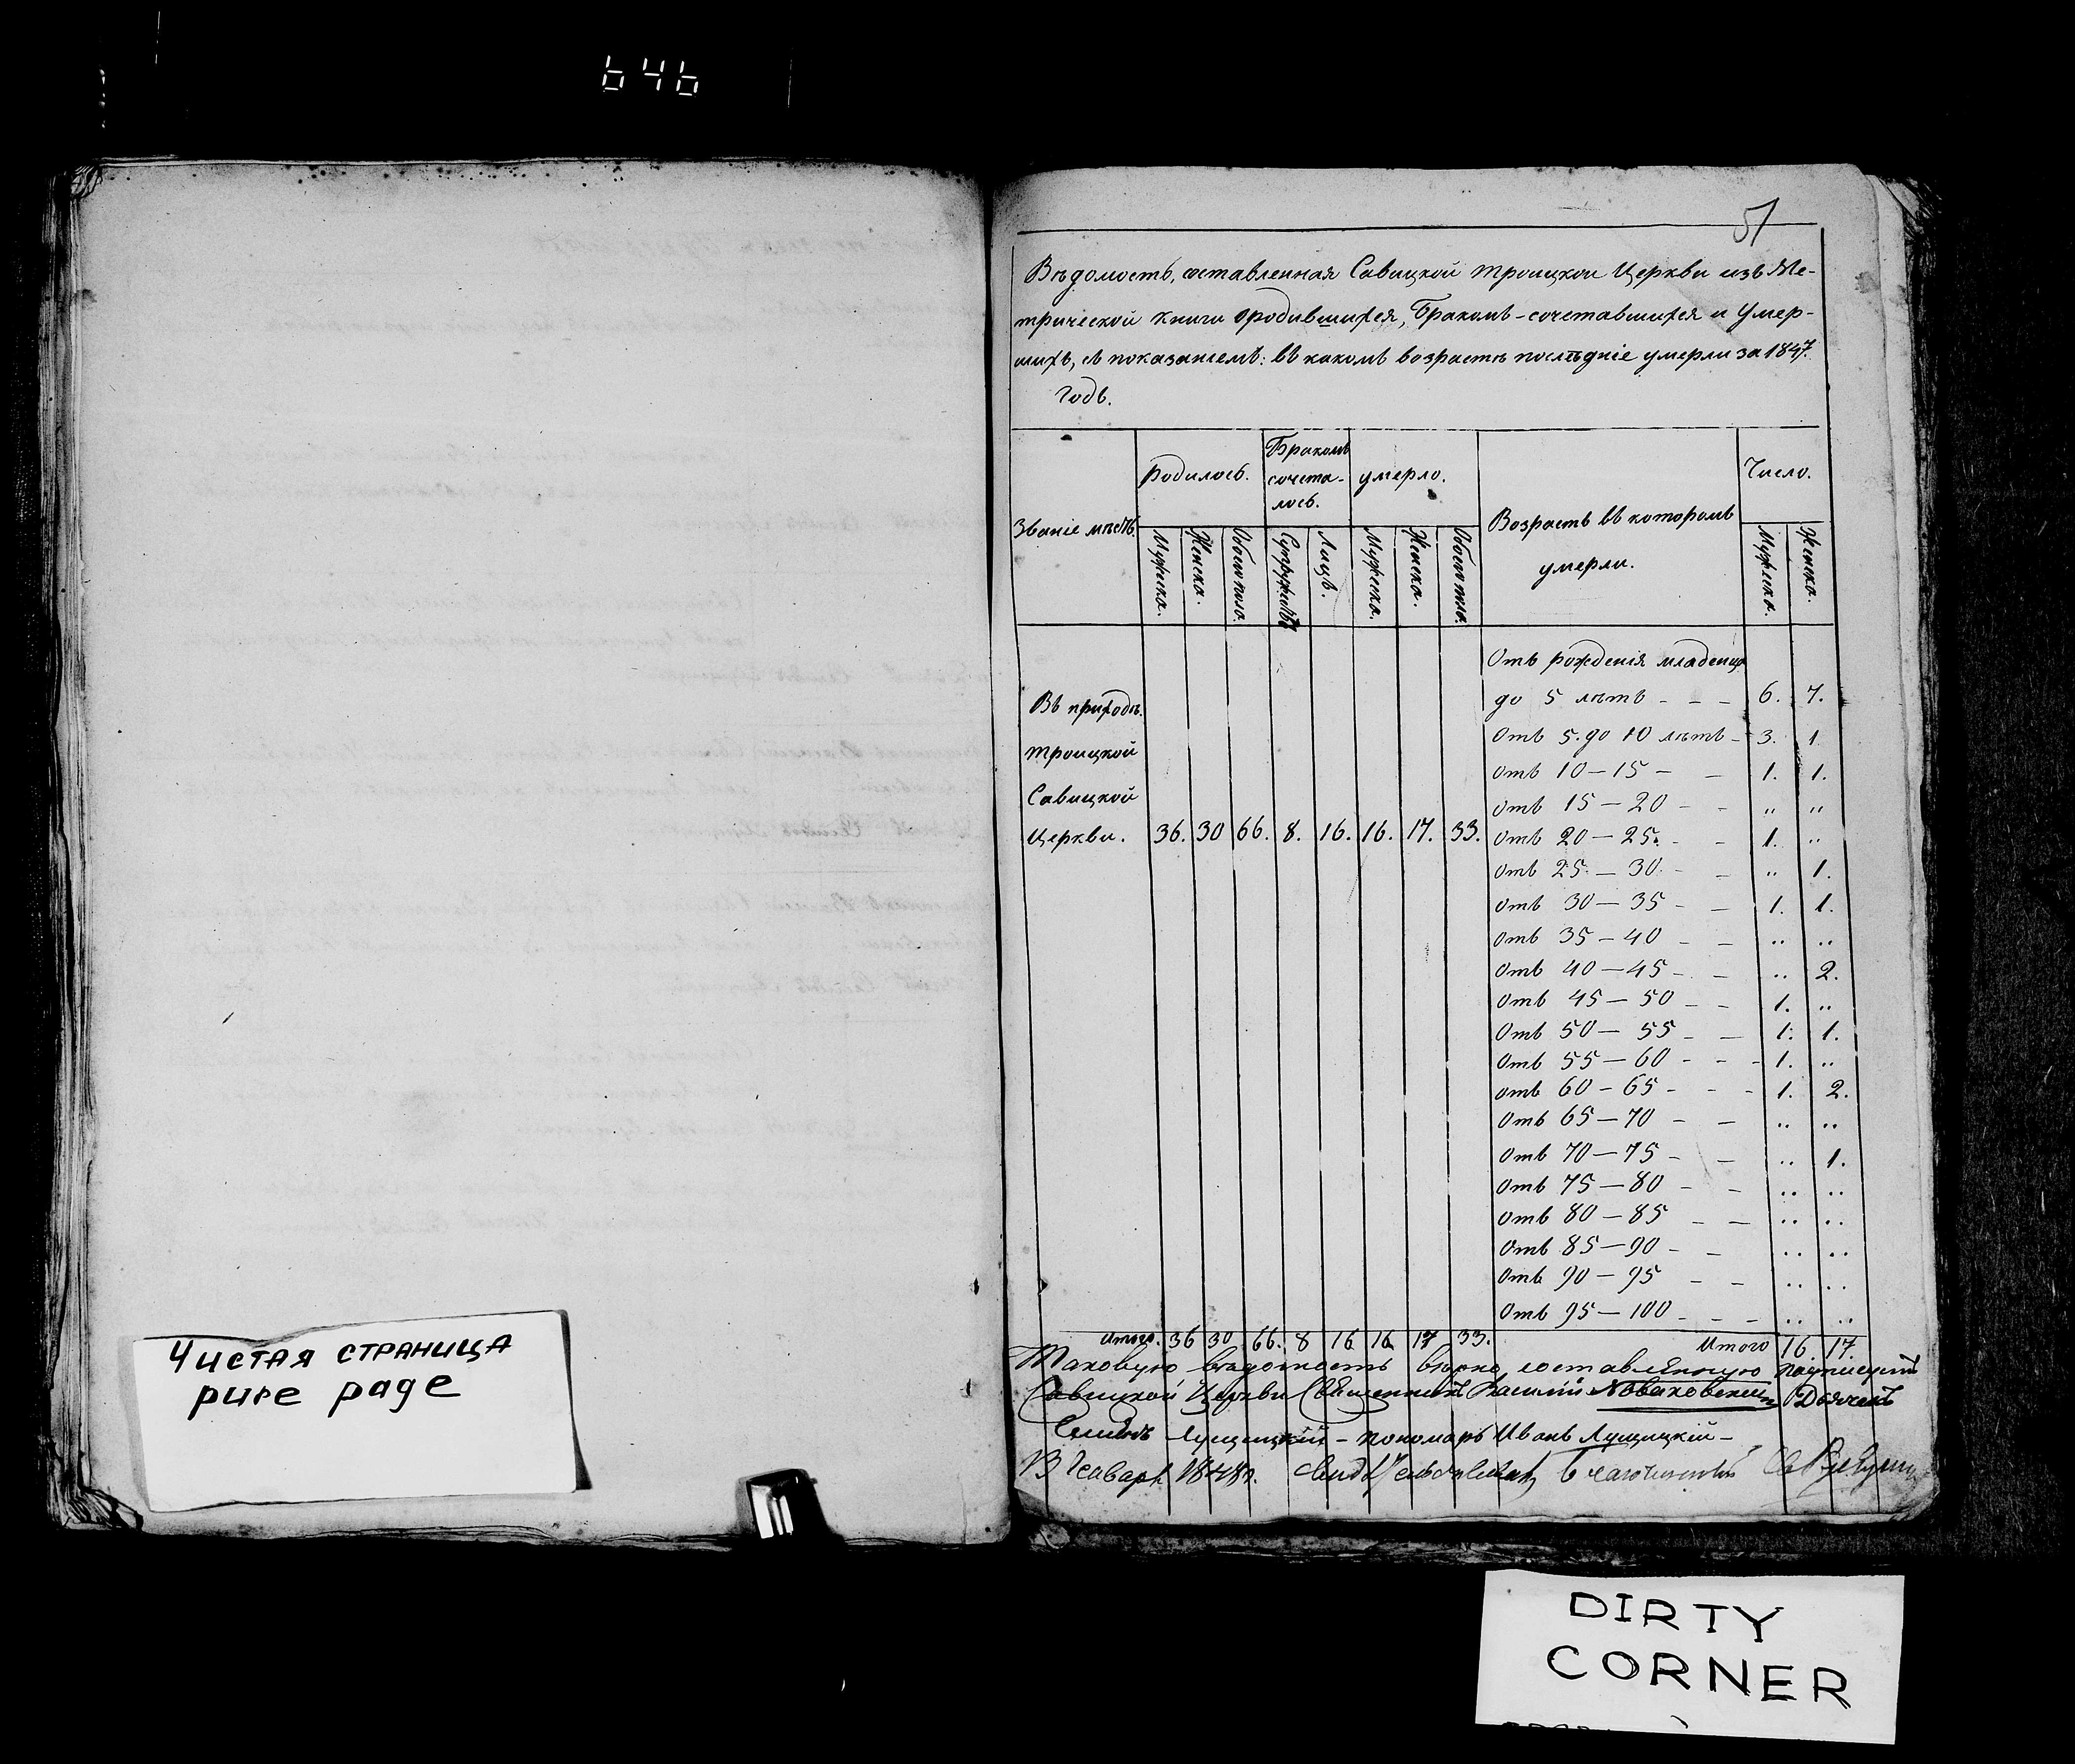 646
51
Вѣдомость, составленная Савицкой троицкой Церкви изъ Ме-
трической книги ородившихся, Бракомъ-сочетавшихся и Умер-
шихъ, съ показаніемъ: въ какомъ возрастѣ послѣдніе умерли за 1847.
Годъ.
Званіе мѣстъ.
родилось.
Бракомъ
сочета-
лось.
умерло.
Возрастъ въ которомъ
умерли.
Число.
Мужеска. Женска. Обоего пола. Супружествъ Лицъ. Мужеска. Женска. Обоего пола. Мужеска. Женска.
Въ приходѣ
троицкой
Савицкой
Церкви. 36. 30 66. 8. 16. 16. 17. 33.
Отъ рожденія младенца
до 5 лѣтъ - - - 6. 7.
Отъ 5. до 10 лѣтъ - 3. 1
Отъ 10 — 15 - - 1. 1.
Отъ 15 — 20 - - „ „
Отъ 20 — 25. - - 1. „
Отъ 25. — 30. - - „ 1.
Отъ 30 — 35 - - 1. 1.
Отъ 35 — 40 - - „ „
Отъ 40 — 45 - - „ 2.
Отъ 45 — 50 - - 1. „
Отъ 50 — 55 - - 1. 1.
Отъ 55 — 60 - - - 1. „
Отъ 60 — 65 - - - 1. 2.
Отъ 65 — 70 - - „ „
Отъ 70 — 75 - - „ 1.
Отъ 75 — 80 - - „ „
Отъ 80 — 85 - - „ „
Отъ 85 — 90 - - „ „
Отъ 90 — 95 - - „ „
Отъ 95 — 100 - - - „ „
Итого. 36 30 66. 8 16 16 17 33. Итого 16. 17.
Таковую вѣдомость вѣрно составленную
Савицкой Церкви Священникъ Василій Новаковскій Дьячекъ
Лущицкій - пономарь Иванъ Лущицкій -
Генваря 1848 г. Благочинный
Чистая страница
pure page
DIRTY
CORNER